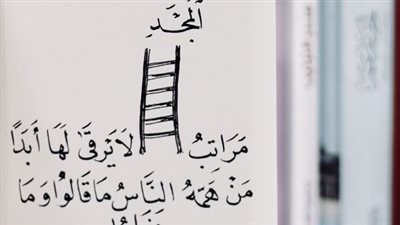 المَجْدِ
مَرَاتِبُ لَا يَرقَىٰ لَهَا أَبَدًا
مَنْ هَمُّهُ النَّاسُ مَا قَالُوا وَمَا